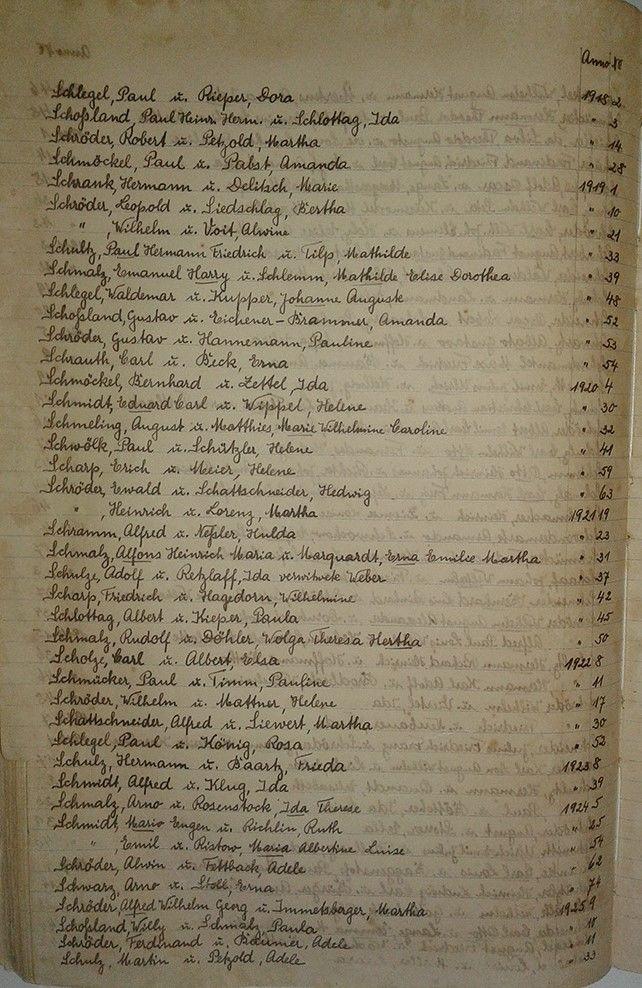 Anno №
Schlegel, Paul u. Rieper, Dora 1918 2
Schoßland, Paul Heinr. Herm. u. Schlottag, Ida " 3
Schröder, Robert u. Petzold, Martha " 14
Schmöckel, Paul u. Pabst, Amanda " 28
Schrank, Hermann u. Delitsch, Marie 1919 1
Schröder, Leopold u. Liedschlag, Bertha " 10
" , Wilhelm u. Voit, Alwine " 21
Schultz, Paul Hermann Friedrich u. Tilp, Mathilde " 33
Schmalz, Emanuel Harry u. Schlemm, Mathilde Elise Dorothea " 39
Schlegel, Waldemar u. Kupper, Johanne Auguste " 48
Schoßland, Gustav u. Eichener-Brammer, Amanda " 52
Schröder, Gustav u. Hannemann, Pauline " 53
Schrauth, Carl u. Beck, Erna " 54
Schmöckel, Bernhard u. Zettel, Ida 1920 4
Schmidt, Eduard Carl u. Wippel, Helene " 30
Schmeling, August u. Matthies, Marie Wilhelmine Caroline " 32
Schwölk, Paul u. Schützler, Helene " 41
Scharp, Erich u. Meier, Helene " 59
Schröder, Ewald u. Schattschneider, Hedwig " 63
" , Heinrich u. Lorenz, Martha 1921 19
Schramm, Alfred u. Neßler, Hulda " 23
Schmalz, Alfons Heinrich Maria u. Marquardt, Erna Emilie Martha " 31
Schulze, Adolf u. Retzlaff, Ida verwitwete Weber " 37
Scharp, Friedrich u. Hagedorn, Wilhelmine " 42
Schlottag, Albert u. Kieper, Paula " 45
Schmalz, Rudolf u. Döhler, Wolga Theresa Hertha " 50
Scholze, Carl u. Albert, Elsa 1922 8
Schmücker, Paul u. Timm, Pauline " 11
Schröder, Wilhelm u. Mattner, Helene " 17
Schattschneider, Alfred u. Siewert, Martha " 30
Schlegel, Paul u. König, Rosa " 52
Schulz, Hermann u. Baartz, Frieda 1923 8
Schmidt, Alfred u. Klug, Ida " 39
Schmalz, Arno u. Rosenstock, Ida Therese 1924 5
Schmidt, Mario Eugen u. Richlin, Ruth " 25
" Emil u. Ristow Maria Albertine Luise " 54
Schröder, Alwin u. Fettback, Adele " 62
Schwarz, Arno u. Stoll, Erna " 74
Schröder, Alfred Wilhelm Georg u. Immetsberger, Martha 1925 9
Schoßland, Willy u. Schmalz, Paula "
Schröder, Ferdinand u. Bäumer, Adele " 11
Schulz, Martin u. Petzold, Adele " 33